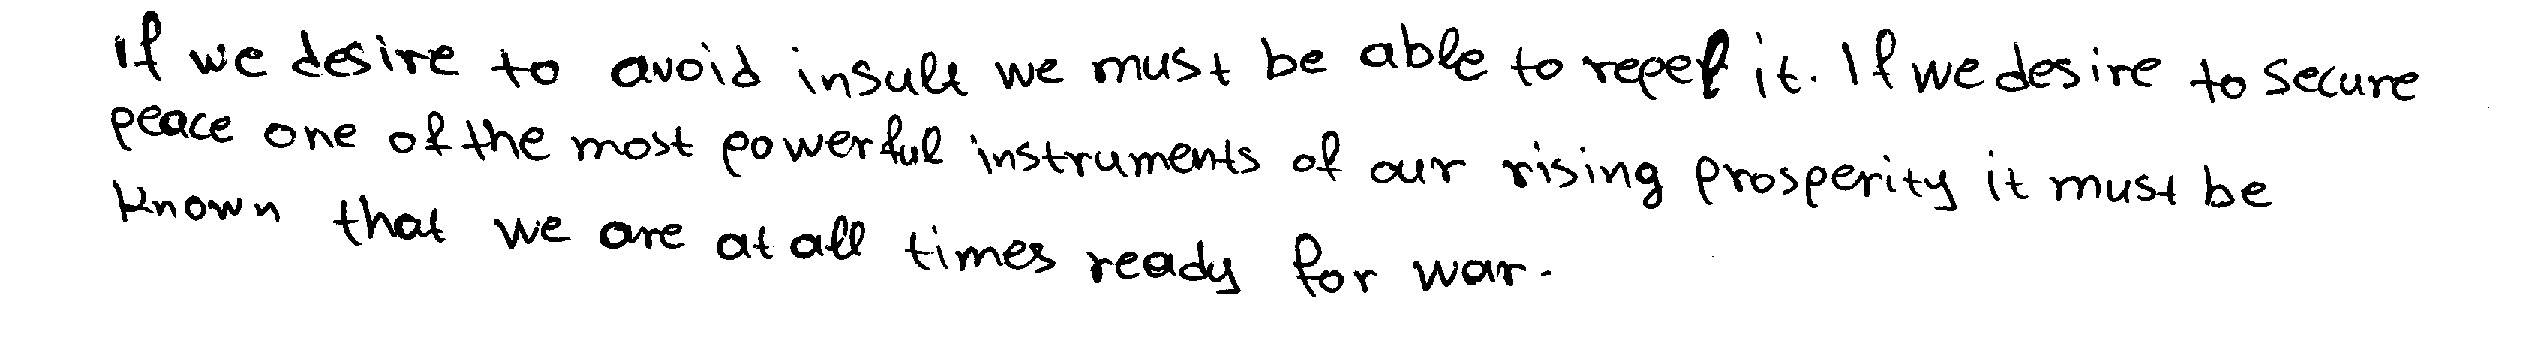 If we desire to avoid insult we must be able to repel it. If we desire to secure
peace one of the most powerful instruments of our rising prosperity it must be
known that we are at all times ready for war.